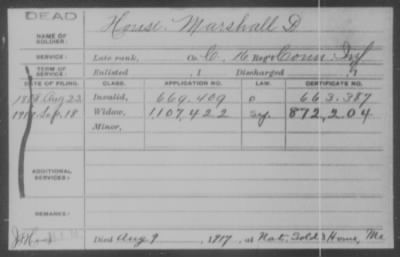 DEAD
NAME OF SOLDIER: House, Marshall D
SERVICE: Late rank, Co. C, 16 Reg't Conn. Inf
TERM OF SERVICE: Enlisted , 1 Discharged , 1
DATE OF FILING. CLASS. APPLICATION NO. LAW. CERTIFICATE NO.
1888 Aug 23 Invalid, 669.409 663.387
1917, Sep. 18 Widow, 1,107,422 872,204
Minor,
ADDITIONAL SERVICES:
REMARKS:
Died Aug 9, 1917, at Nat. Sold's Home, Me